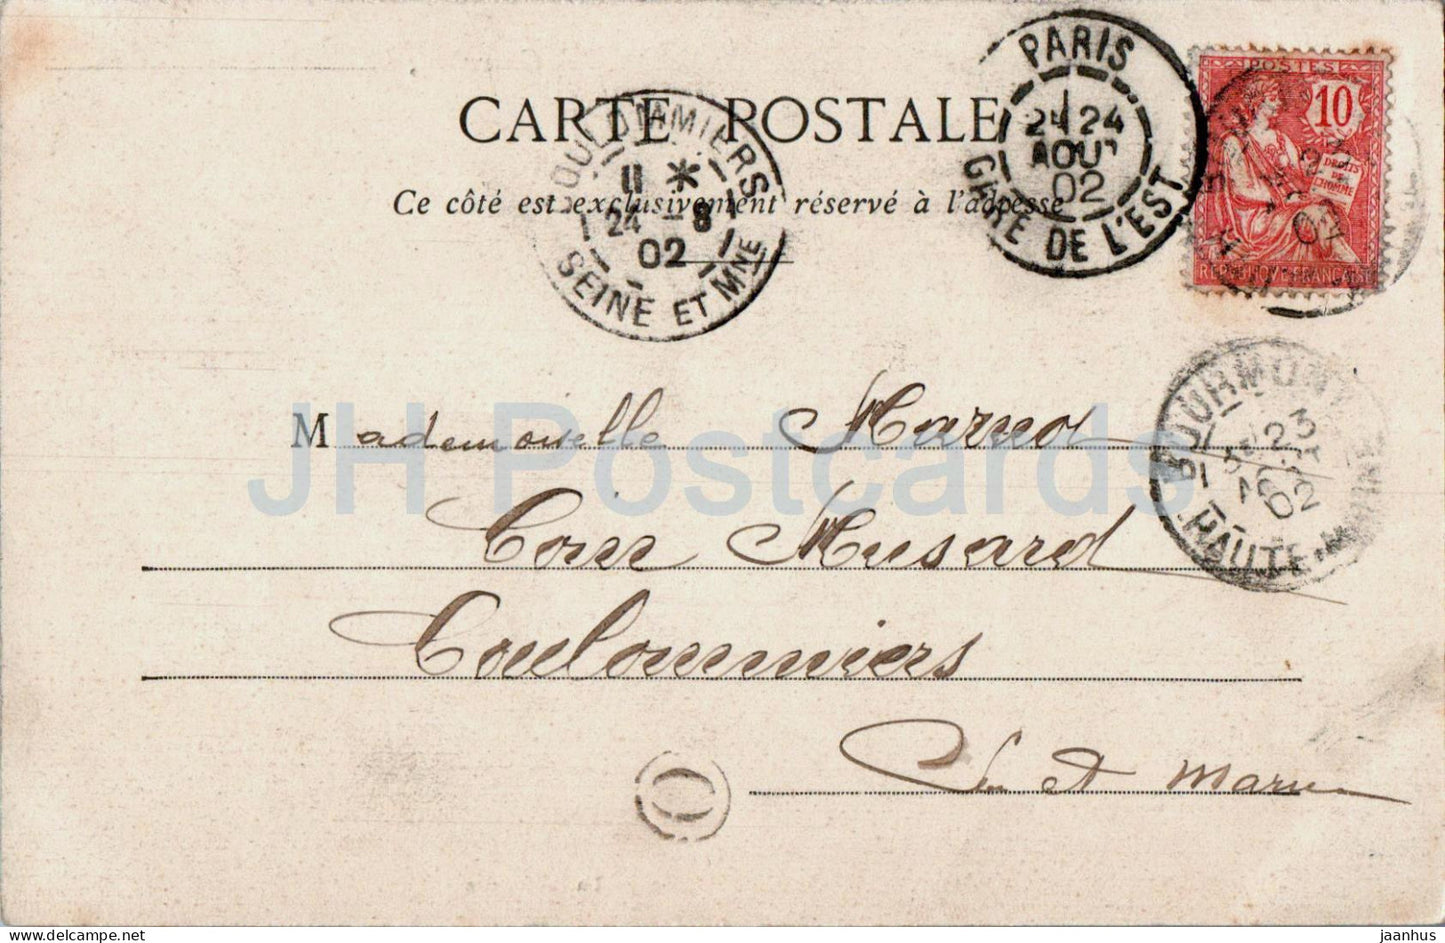 CARTE POSTALE
Ce côté est exclusivement réservé à l'adresse
COULOMMIERS
11 *
24 - 8
02
SEINE ET MNE
PARIS
24 24
AOUT
02
GARE DE L'EST
POSTES
10
DROITS
DE
L'HOMME
REPUBLIQUE FRANÇAISE
02
BOURMONT
3
02
HAUTE-M
Mademoiselle
Cour Musard
Coulommiers
et Marne
O
JH Postcards
delcampe.net
jaanhus